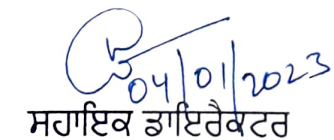 04/01/2023
ਸਹਾਇਕ ਡਾਇਰੈਕਟਰ